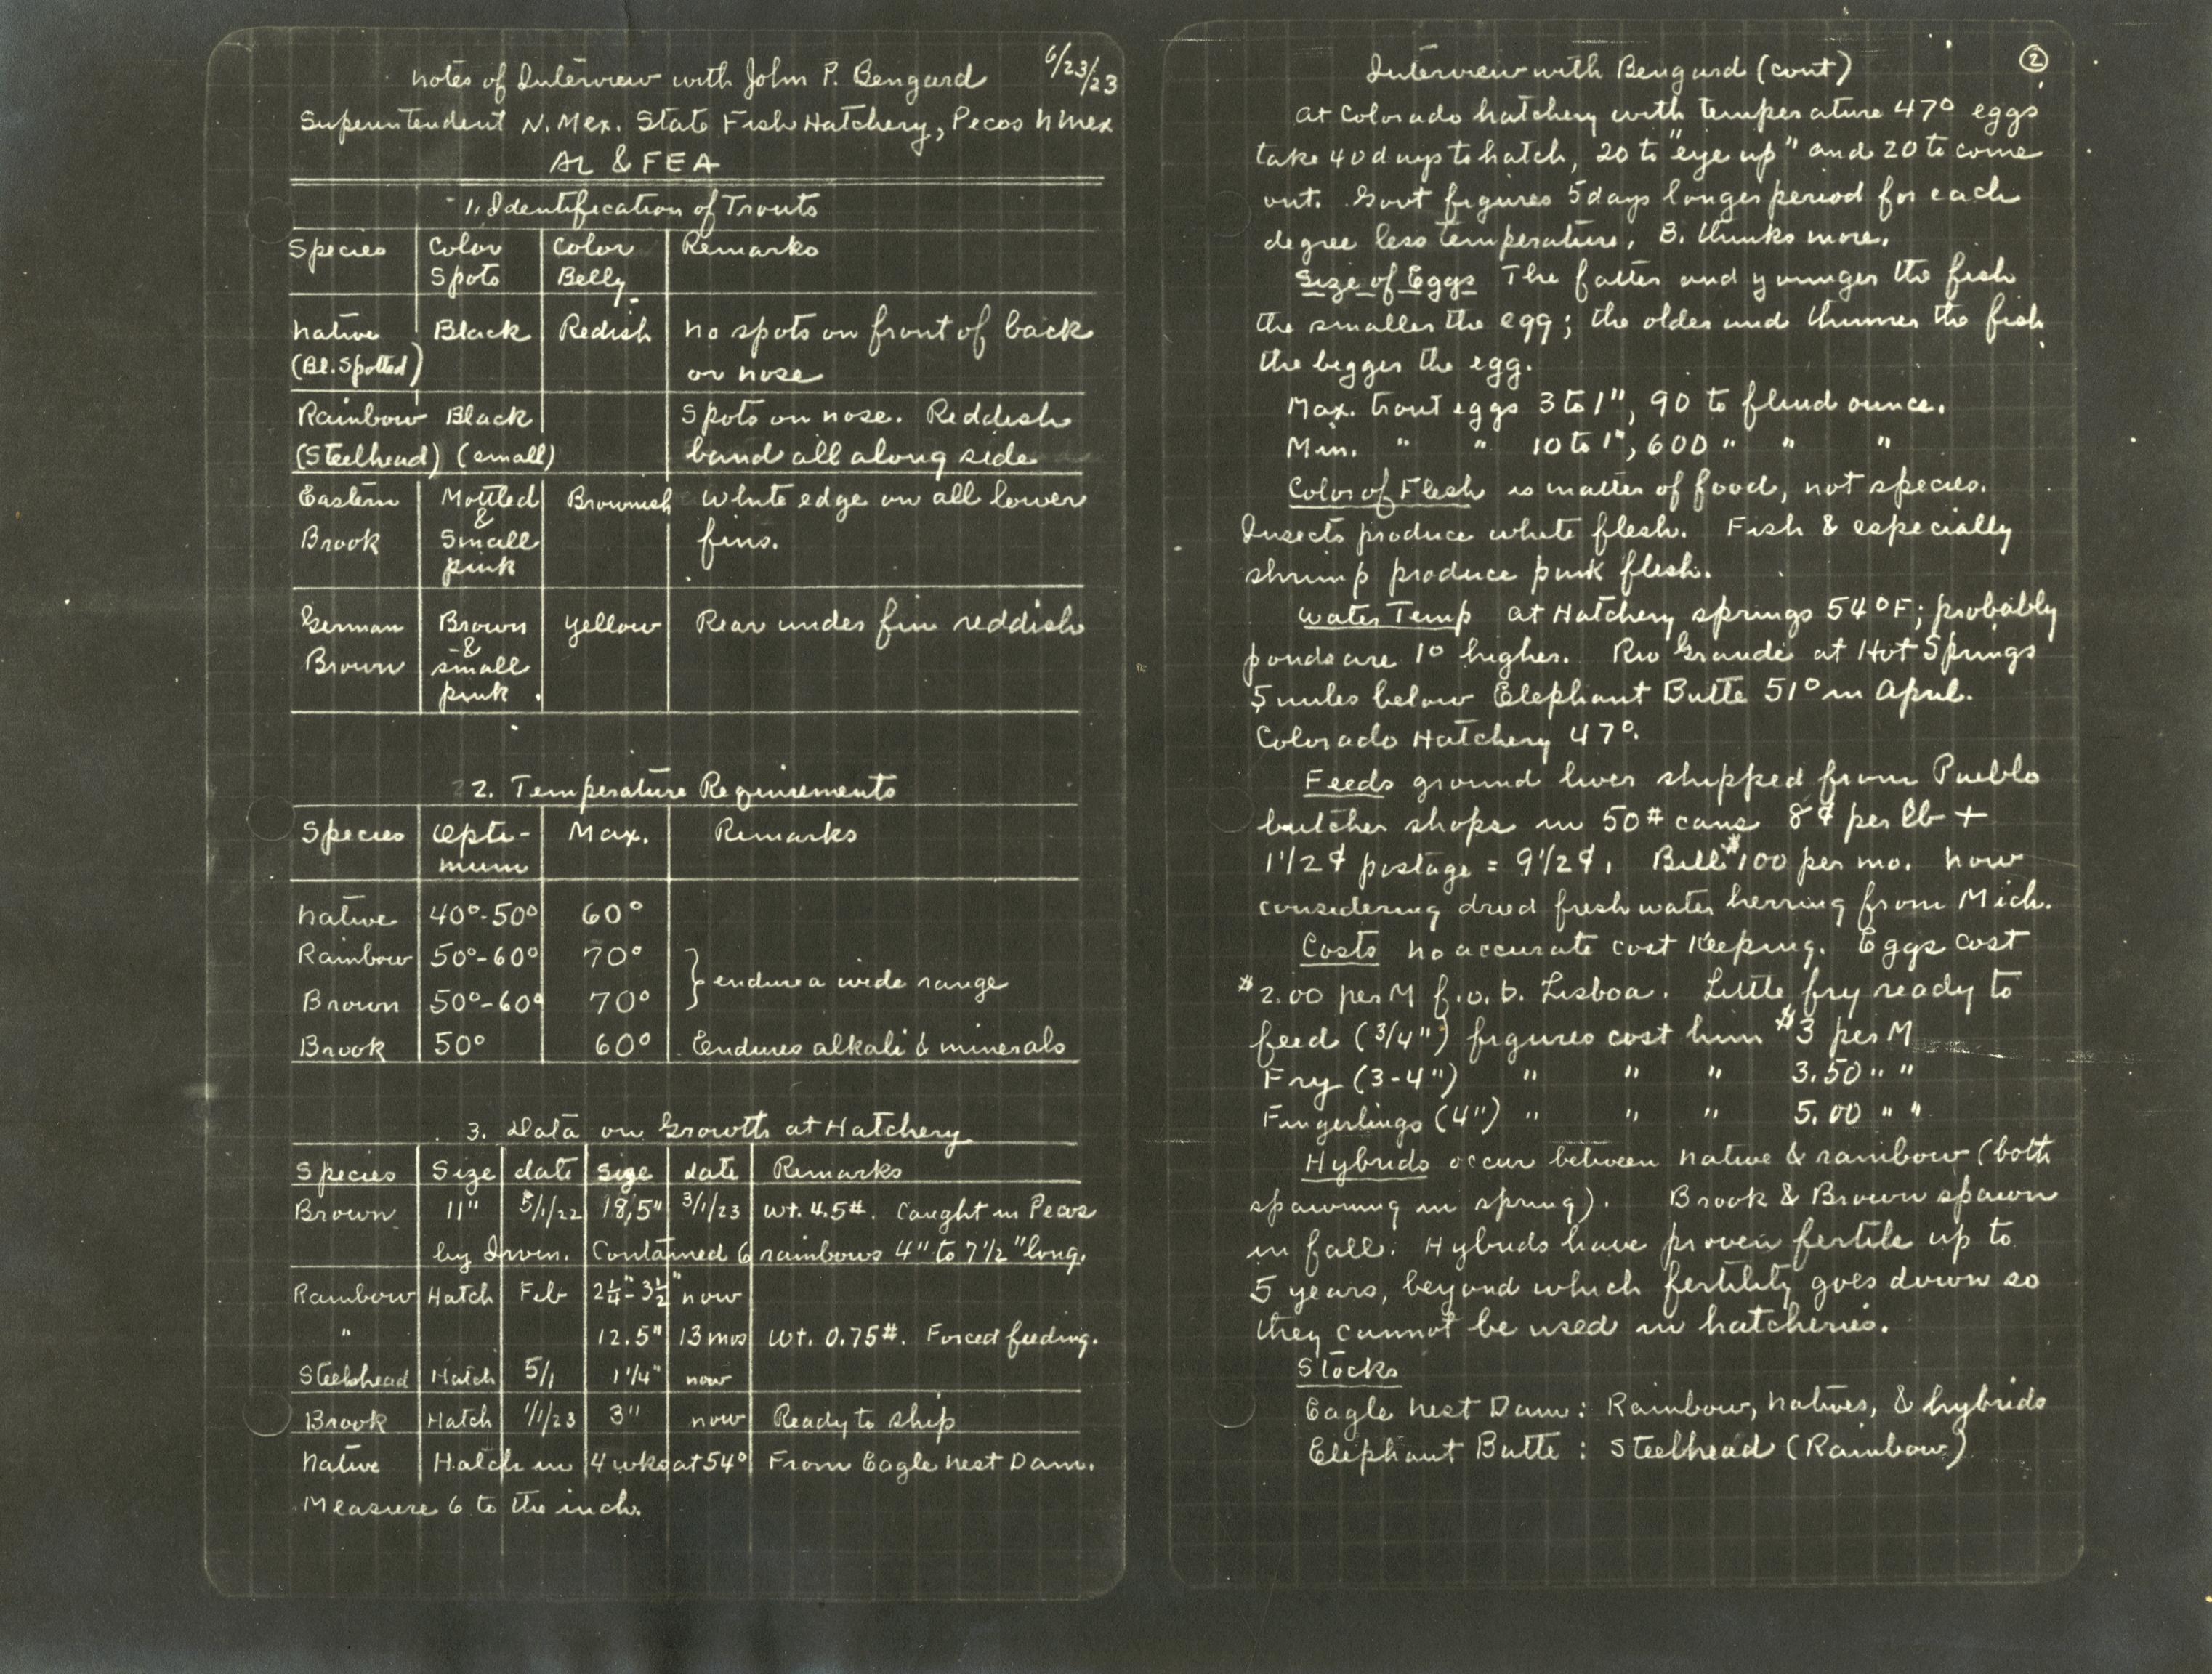 notes of Interview with John P. Bengard 6/23/23
Superintendent N. Mex. State Fish Hatchery, Pecos N Mex
AL & FEA
1. Identification of Trouts
Species Color Spots Color Belly Remarks
Native (Bl. Spotted) Black Redish no spots on front of back or nose
Rainbow (Steelhead) Black (small) Spots on nose. Reddish band all along side
Eastern Brook Mottled & Small pink Brownish White edge on all lower fins.
German Brown Brown & small pink. yellow Rear under fin reddish
2. Temperature Requirements
Species Opti-mum Max. Remarks
Native 40°-50° 60°
Rainbow 50°-60° 70°
} endure a wide range
Brown 50°-60° 70°
Brook 50° 60° Endures alkali & minerals
3. Data on Growth at Hatchery
Species Size date Size date Remarks
Brown 11" 5/1/22 18.5" 3/1/23 wt. 4.5#. Caught in Pecos
by Irwin. Contained 6 rainbows 4" to 7 1/2" long.
Rainbow Hatch Feb 2 1/4"-3 1/2" now
" 12.5" 13 mos Wt. 0.75#. Forced feeding.
Steelhead Hatch 5/1 1 1/4" now
Brook Hatch 1/1/23 3" now Ready to ship
Native Hatch in 4 wks at 54° From Eagle Nest Dam.
Measure 6 to the inch.
Interview with Bengard (cont) 2
at Colorado hatchery with temperature 47° eggs
take 40 days to hatch, 20 to "eye up" and 20 to come
out. Govt figures 5 days longer period for each
degree less temperature, B. thinks more.
Size of Eggs The fatter and younger the fish
the smaller the egg; the older and thinner the fish
the bigger the egg.
Max. trout eggs 3 to 1", 90 to fluid ounce.
Min. " " 10 to 1", 600 " " "
Color of Flesh is matter of food, not species.
Insects produce white flesh. Fish & especially
shrimp produce pink flesh.
Water Temp at Hatchery springs 54°F; probably
ponds are 1° higher. Rio Grande at Hot Springs
5 miles below Elephant Butte 51° in April.
Colorado Hatchery 47°.
Feeds ground liver shipped from Pueblo
butcher shops in 50# cans 8¢ per lb +
1 1/2¢ postage = 9 1/2¢. Bill $100 per mo. Now
considering dried fresh water herring from Mich.
Costs no accurate cost keeping. Eggs cost
$2.00 per M f.o.b. Lisboa. Little fry ready to
feed (3/4") figures cost him $3 per M
Fry (3-4") " " " 3.50 " "
Fingerlings (4") " " " 5.00 " "
Hybrids occur between native & rainbow (both
spawning in spring). Brook & Brown spawn
in fall. Hybrids have proven fertile up to
5 years, beyond which fertility goes down so
they cannot be used in hatcheries.
Stocks
Eagle Nest Dam: Rainbow, Natives, & hybrids
Elephant Butte: Steelhead (Rainbow)